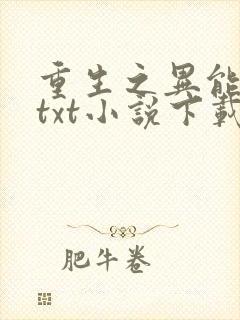 重生之異能
txt小說下載
肥牛卷